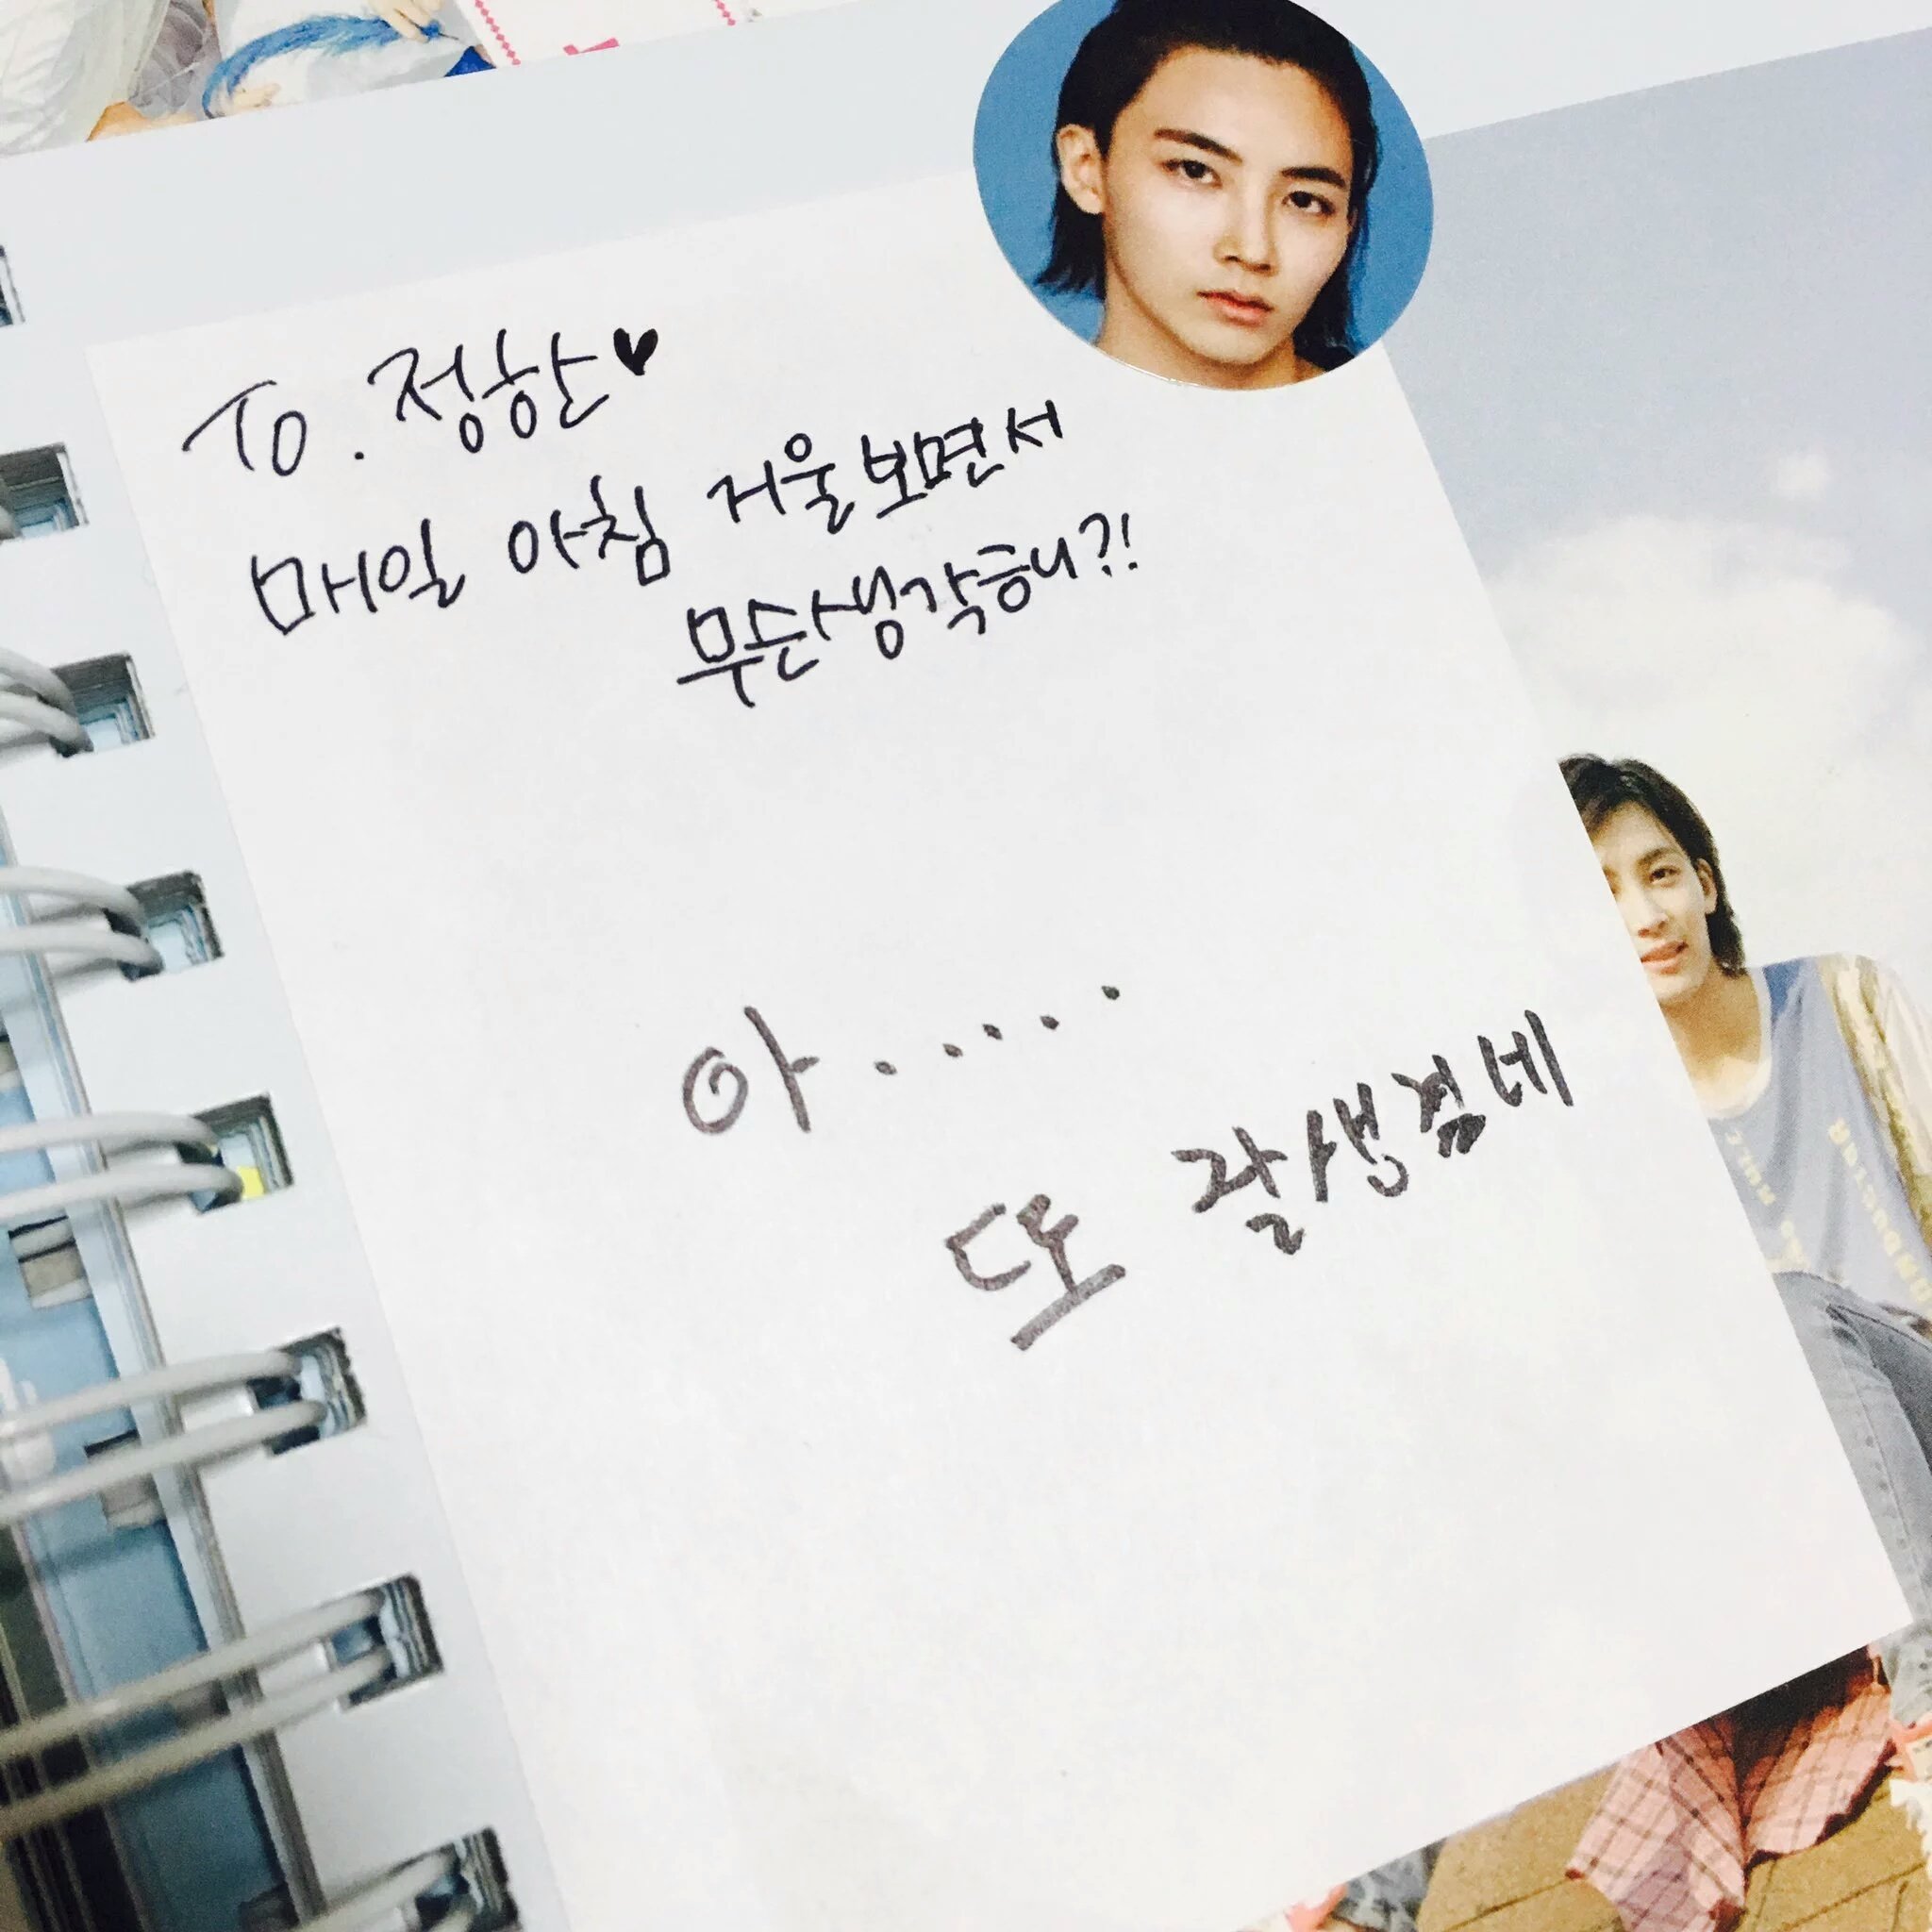 To. 정한♥
매일 아침 거울보면서
무슨생각하니?!
아......
또 잘생겼네